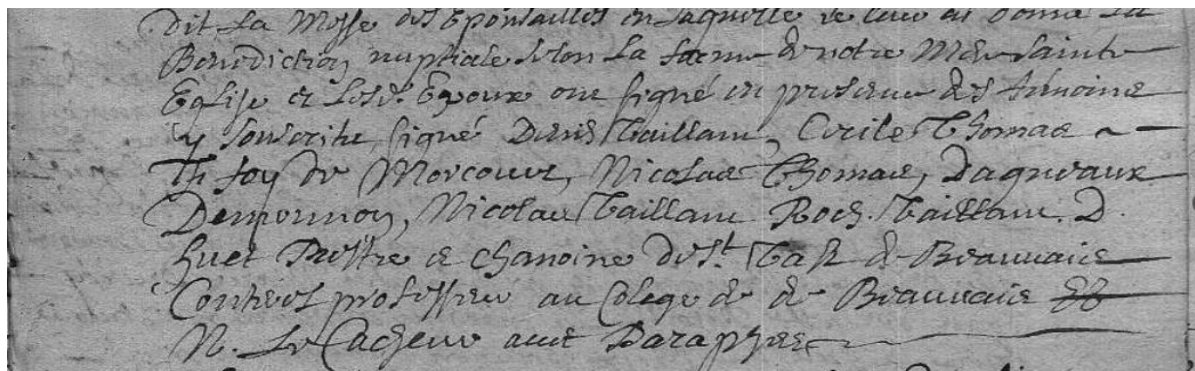 dit la Messe des Epousailles en laquelle je leur ai donné la
Benediction nuptiale selon la forme de notre Mere Sainte
Eglise et lesd. Epoux ont signé en presence des temoins
y souscrits, signé Denis Vaillant, Cecile Thomas
Th foy de Morcourt, Nicolas Thomas, Dagneaux
Demormon, Nicolas Vaillant Roch. Vaillant. D.
huet Prestre et chanoine de St. Vast de Beauvais
professeur au Colege de de Beauvais &
N. Le Cacheur avec Paraphes